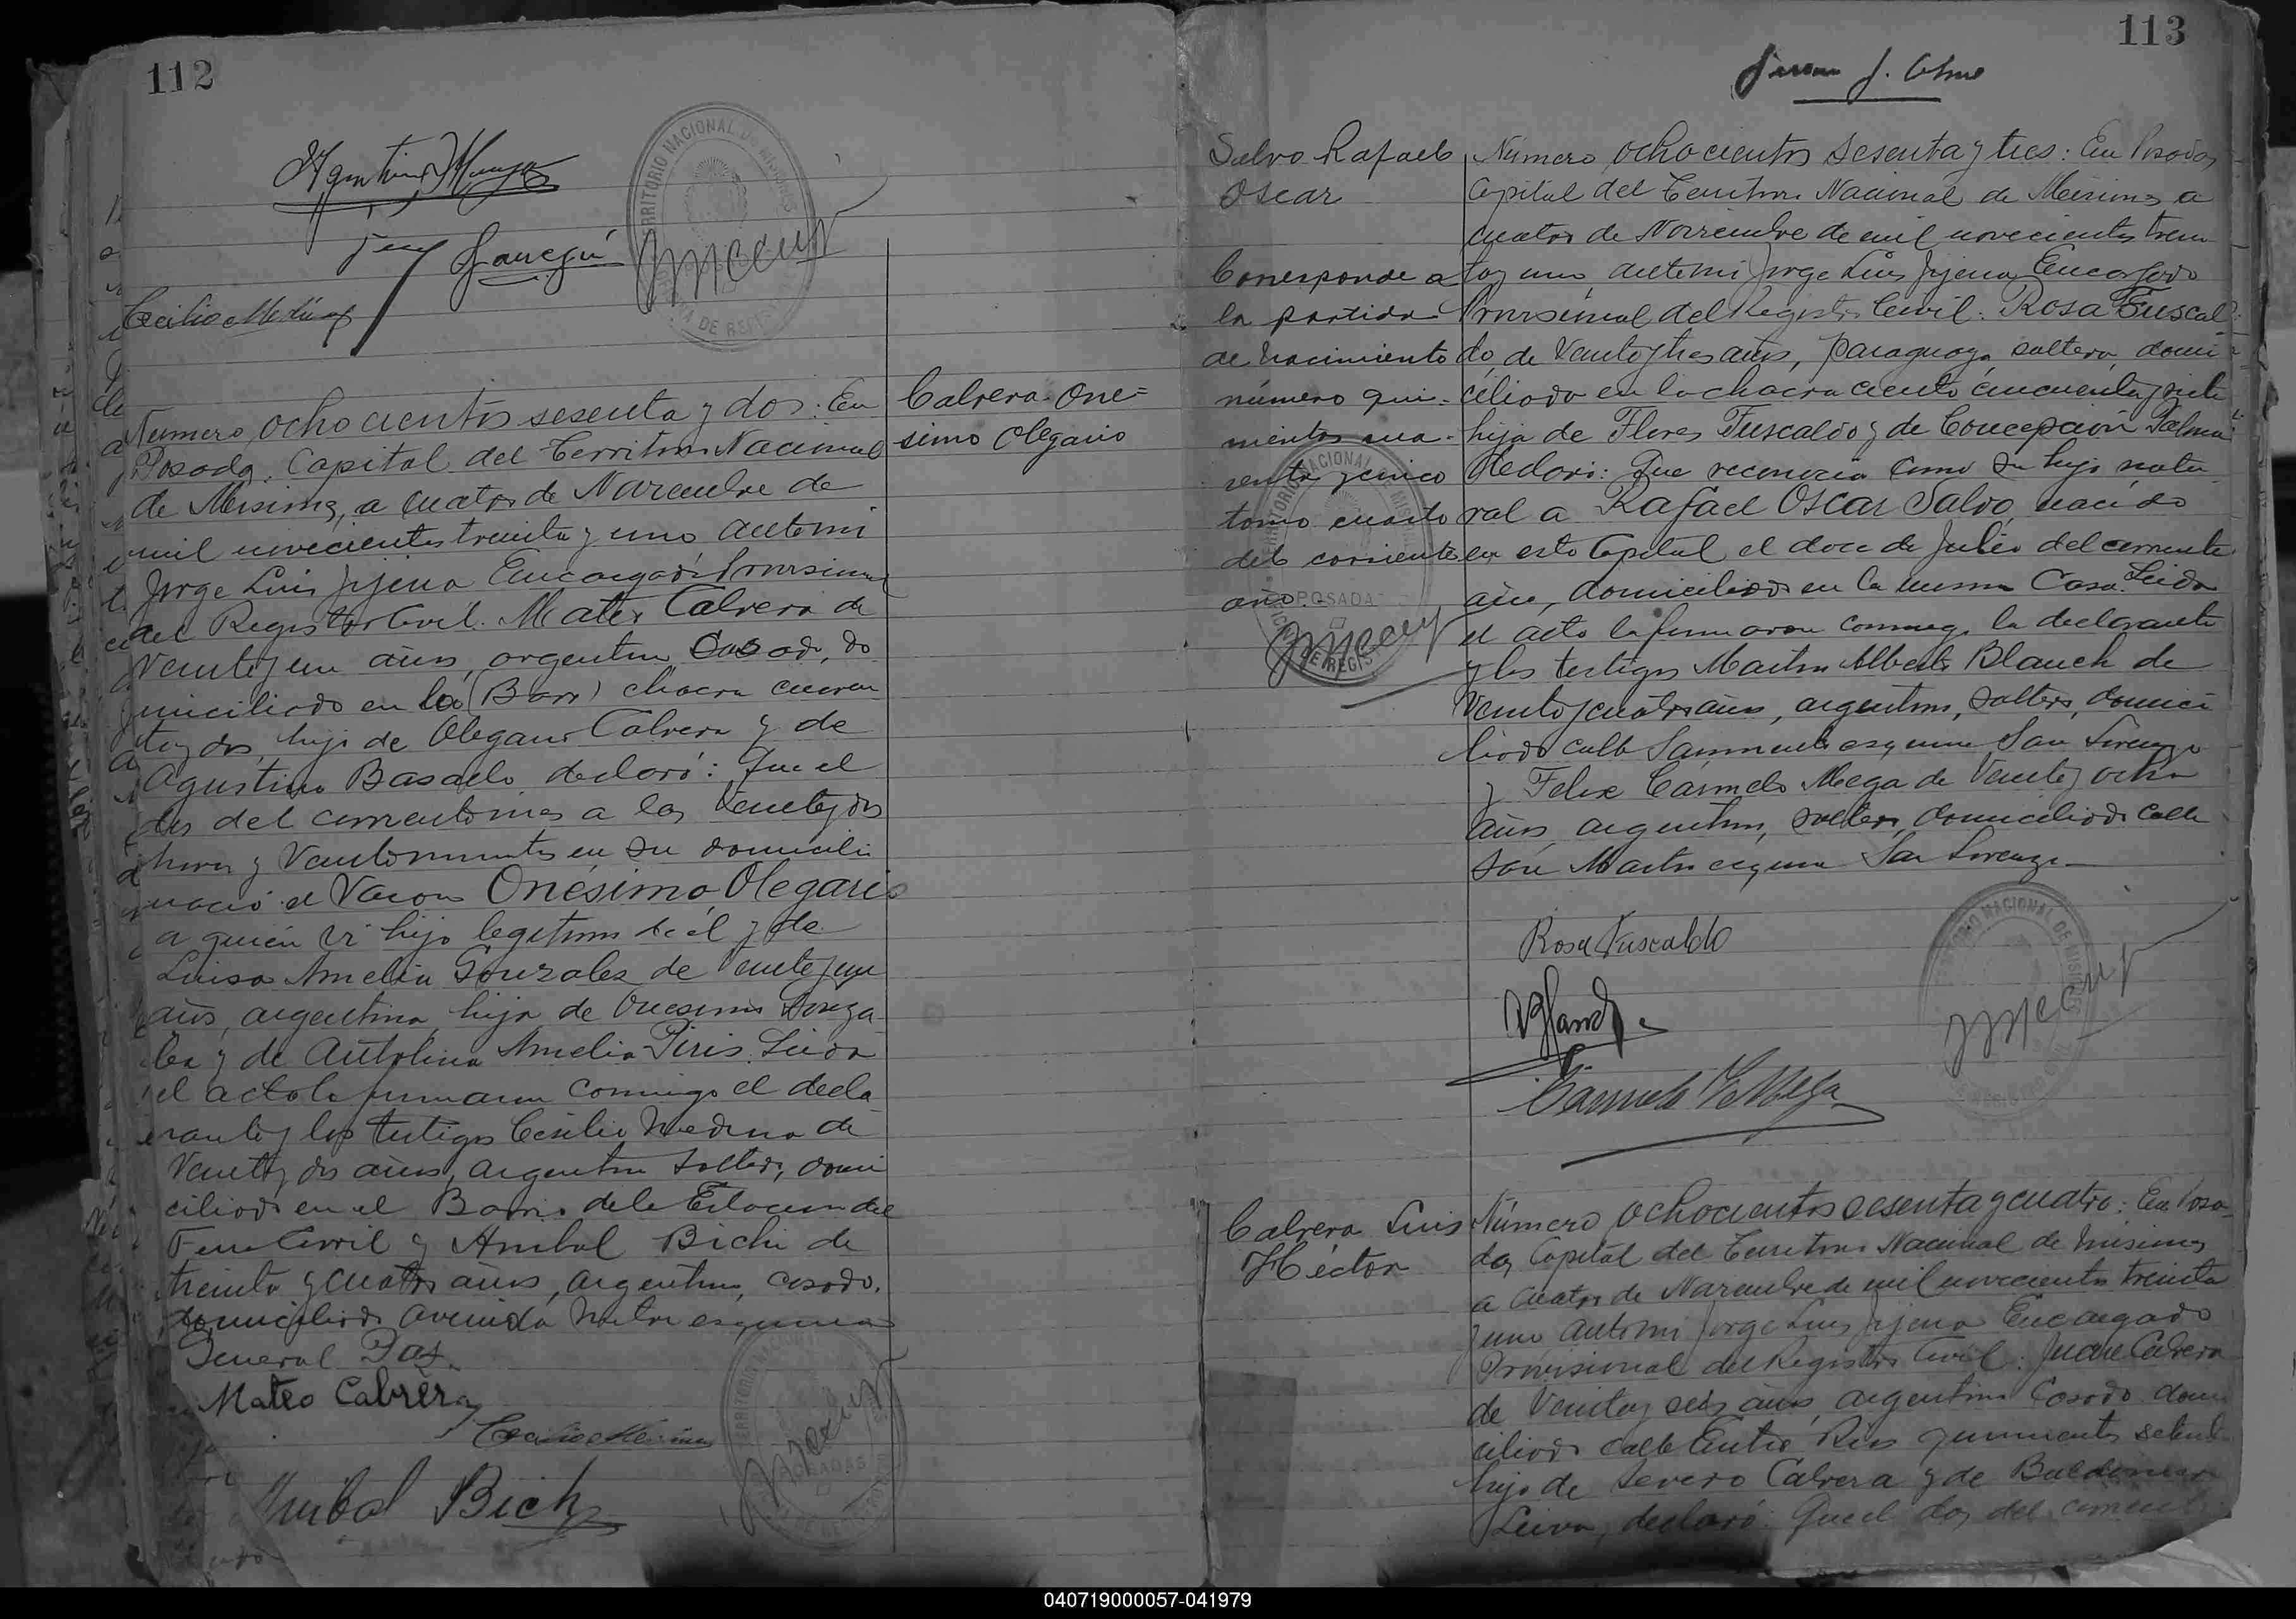 112
Cecilio Medina
Número ochocientos sesenta y dos: En
Posadas, Capital del Territorio Nacional
de Misiones, a cuatro de Noviembre de
mil novecientos treinta y uno ante mi
Jorge Luis Jijena Encargado Provisional
del Registro Civil. Mateo Cabrera de
veinte y un años, argentino, casado, do
miciliado en la (Barr) chacra cuaren
ta y dos, hijo de Olegario Cabrera y de
Agustina Basaelo declaró: Que el
dos del corriente mes a las veinte y dos
horas y veinte minutos en su domicilio
nació el varon Onésimo Olegario
a quien vi hijo legitimo de él y de
Luisa Amelia Gonzalez de veinte y un
años, argentina, hija de Onesimo Gonza
lez y de Antolina Amelia Piris. Leida
el acta la firmaron conmigo el decla
rante y los testigos Cecilio Medina de
veinte y dos años, argentino soltero, domi
ciliado en el Barrio de la Estacion del
Ferro Carril y Anibal Bichi de
treinta y cuatro años, argentino, casado,
domiciliado avenida Mitre esquina
General Paz.
Mateo Cabrera
Cecilio Medina
Anibal Bich
Cabrera One=
simo Olegario
113
Salvo Rafael
Oscar
Corresponde a
la partida
de nacimiento
número qui-
nientos cua-
renta y cinco
tomo cuarto
del corriente
año.
Número ochocientos sesenta y tres: En Posadas,
Capital del Territorio Nacional de Misiones a
cuatro de Noviembre de mil novecientos trein
ta y uno, ante mi Jorge Luis Jijena Encargado
Provisional del Registro Civil: Rosa Fuscal
do, de veinte y tres años, paraguaya, soltera, domi
ciliada en la chacra ciento cincuenta y siete
hija de Flores Fuscaldo y de Concepción Palma
declaró: Que reconocia como su hijo natu
ral a Rafael Oscar Salvo, nacido
en esta Capital el doce de Julio del corriente
año, domiciliado en la misma Casa. Leida
el acta la firmaron conmigo la declarante
y los testigos Martin Alberto Blanch de
veinte y cuatro años, argentino, soltero, domici
liado calle Sarmiento esquina San Lorenzo
y Felix Cármelo Mega de veinte y ocho
años, argentino, soltero, domiciliado calle
San Martin esquina San Lorenzo.
Rosa Fuscaldo
Blanch
Carmelo F. Mega
Cabrera Luis
Héctor
Número ochocientos sesenta y cuatro: En Posa
das, Capital del Territorio Nacional de Misiones
a cuatro de Noviembre de mil novecientos treinta
y uno ante mi Jorge Luis Jijena Encargado
Provisional del Registro Civil: Juan Cabrera
de veinte y seis años, argentino casado domi
ciliado calle Entre Rios quinientos setenta
hijo de Severo Cabrera y de Baldomera
Leiva, declaró: Que el dos del corriente
040719000057-041979